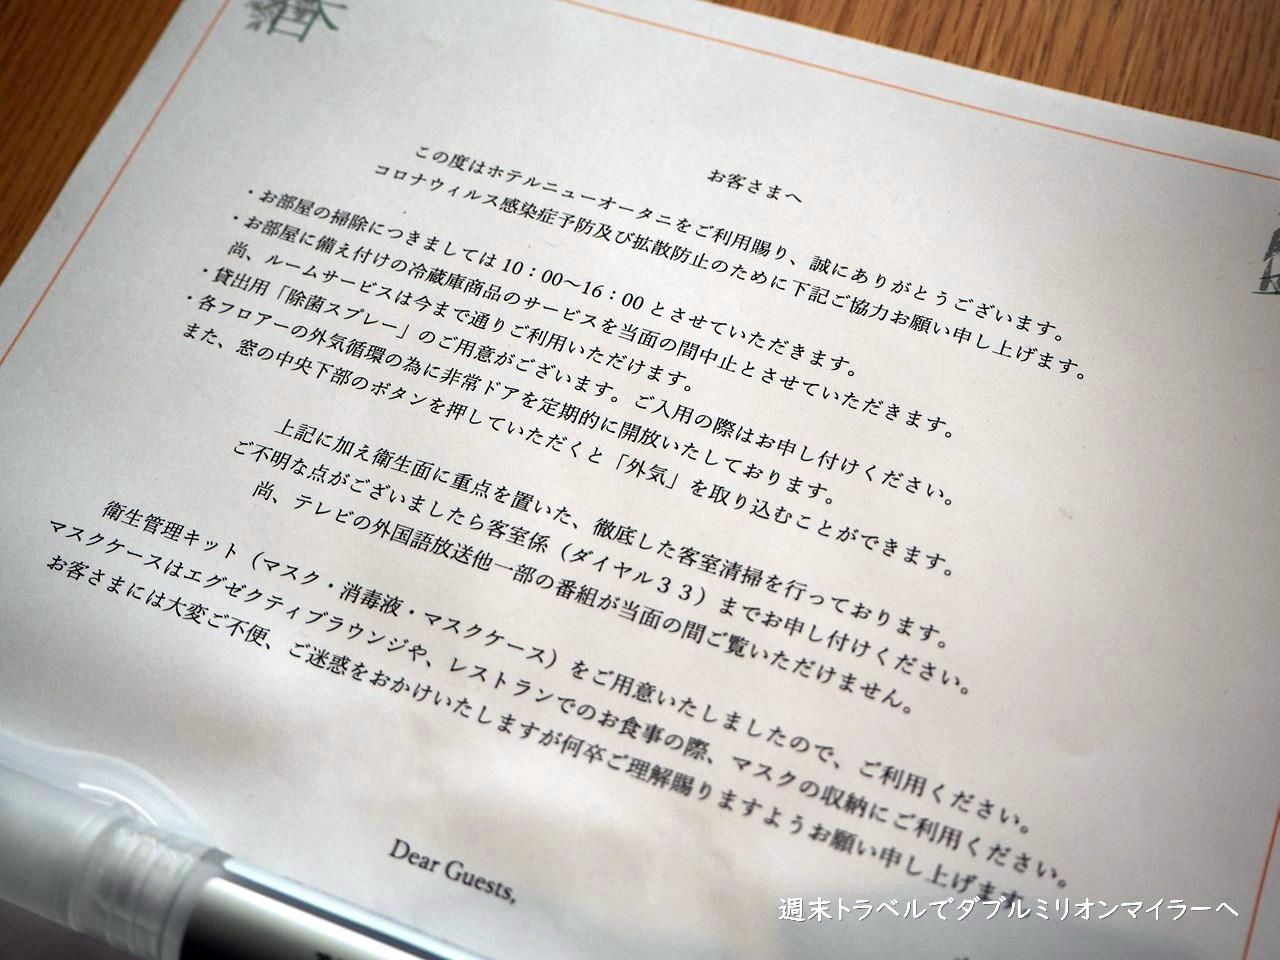 お客さまへ
この度はホテルニューオータニをご利用賜り、誠にありがとうございます。
コロナウィルス感染症予防及び拡散防止のために下記ご協力お願い申し上げます。
・お部屋の掃除につきましては10：00～16：00とさせていただきます。
・お部屋に備え付けの冷蔵庫商品のサービスを当面の間中止とさせていただきます。
尚、ルームサービスは今まで通りご利用いただけます。
・貸出用「除菌スプレー」のご用意がございます。ご入用の際はお申し付けください。
・各フロアーの外気循環の為に非常ドアを定期的に開放いたしております。
また、窓の中央下部のボタンを押していただくと「外気」を取り込むことができます。
上記に加え衛生面に重点を置いた、徹底した客室清掃を行っております。
ご不明な点がございましたら客室係（ダイヤル３３）までお申し付けください。
尚、テレビの外国語放送他一部の番組が当面の間ご覧いただけません。
衛生管理キット（マスク・消毒液・マスクケース）をご用意いたしましたので、ご利用ください。
マスクケースはエグゼクティブラウンジや、レストランでのお食事の際、マスクの収納にご利用ください。
お客さまには大変ご不便、ご迷惑をおかけいたしますが何卒ご理解賜りますようお願い申し上げます。
Dear Guests,
週末トラベルでダブルミリオンマイラーへ